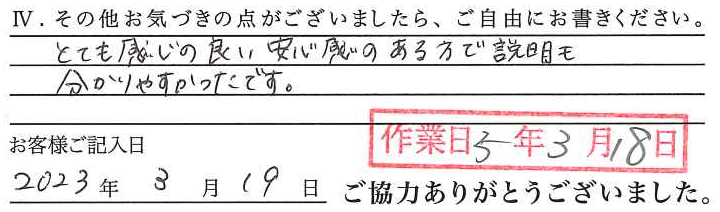 Ⅳ．その他お気づきの点がございましたら、ご自由にお書きください。
とても感じの良い安心感のある方で説明も
分かりやすかったです。
作業日5年3月18日
お客様ご記入日
2023年 3月19日 ご協力ありがとうございました。